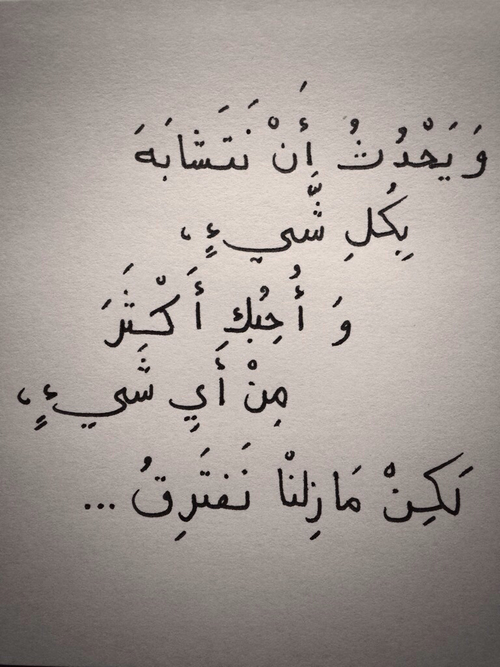 وَيَحْدُثُ أَنْ نَتَشابَهَ
بِكُلِ شَّيءٍ،
وَ أُحِبُكِ أَكْثَرَ
مِنْ أَيِ شَّيءٍ،
لَكِنْ مَازِلنْا نَفتَرِقُ ...